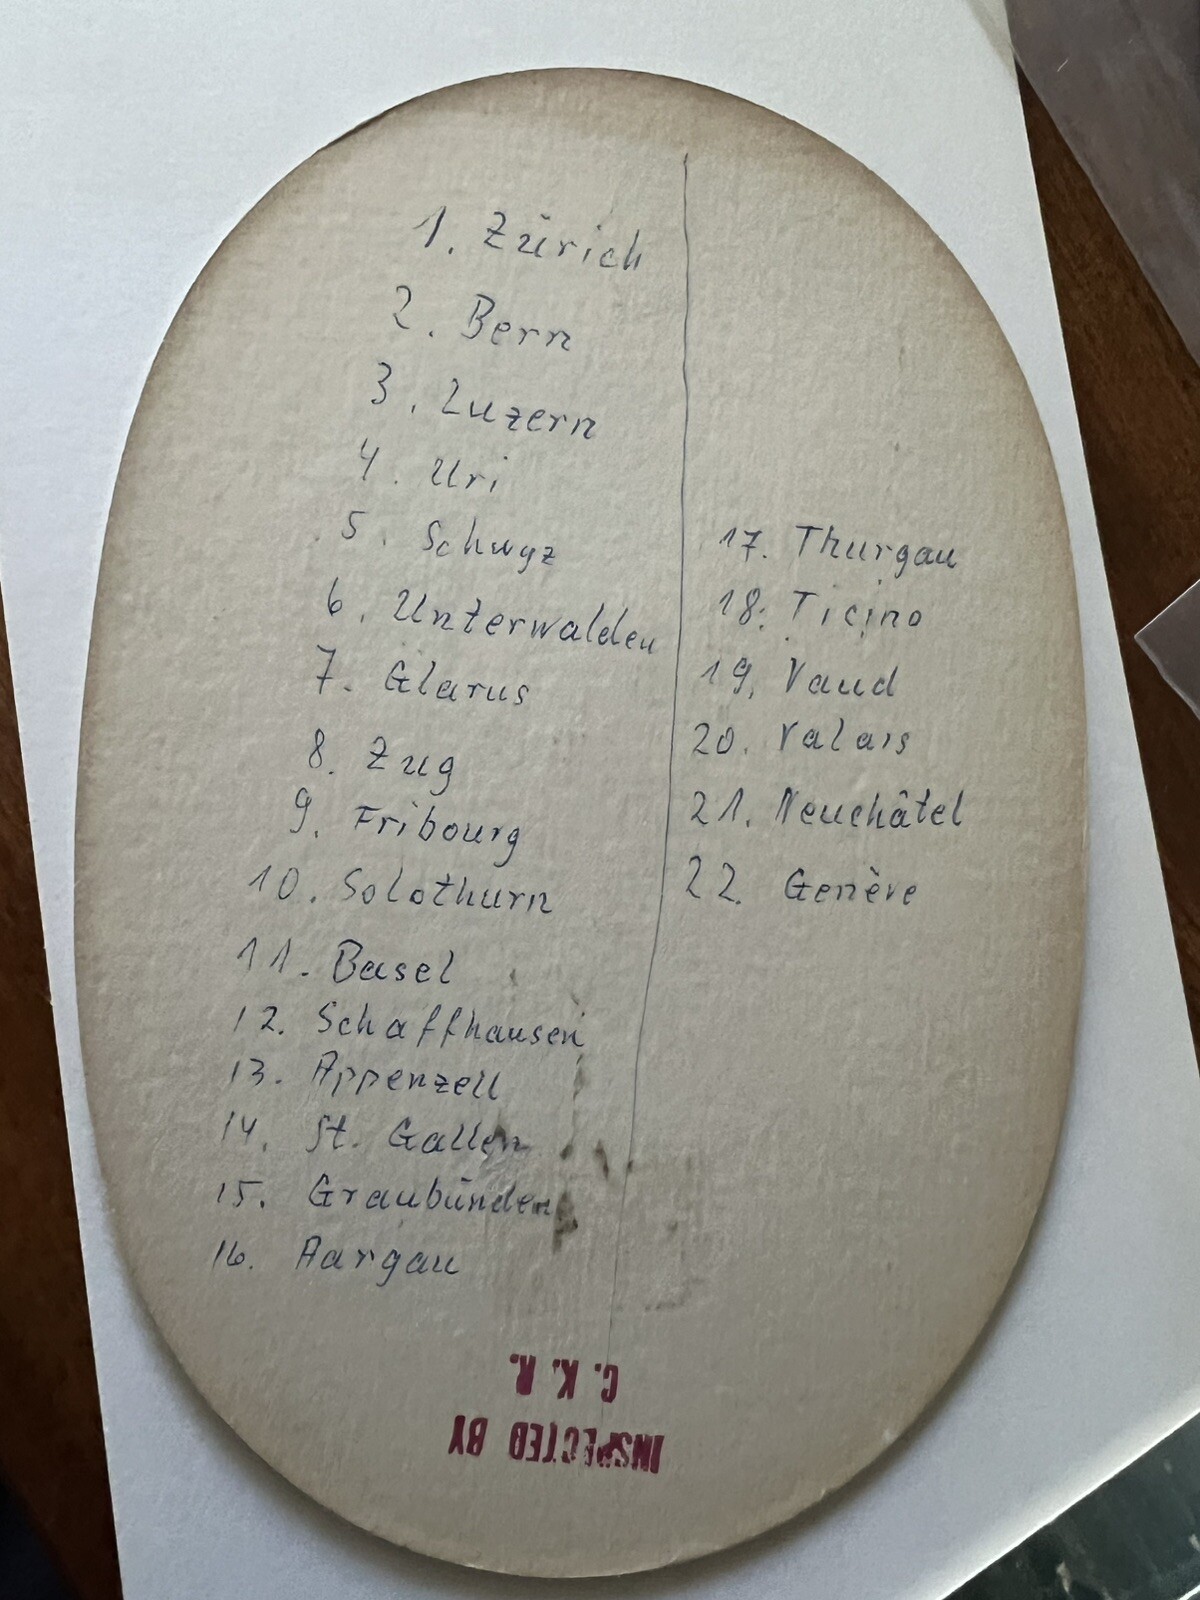 1. Zürich
2. Bern
3. Luzern
4. Uri
5. Schwyz
6. Unterwalden
7. Glarus
8. Zug
9. Fribourg
10. Solothurn
11. Basel
12. Schaffhausen
13. Appenzell
14. St. Gallen
15. Graubünden
16. Aargau
17. Thurgau
18. Ticino
19. Vaud
20. Valais
21. Neuchâtel
22. Genève
INSPECTED BY
C. K. R.